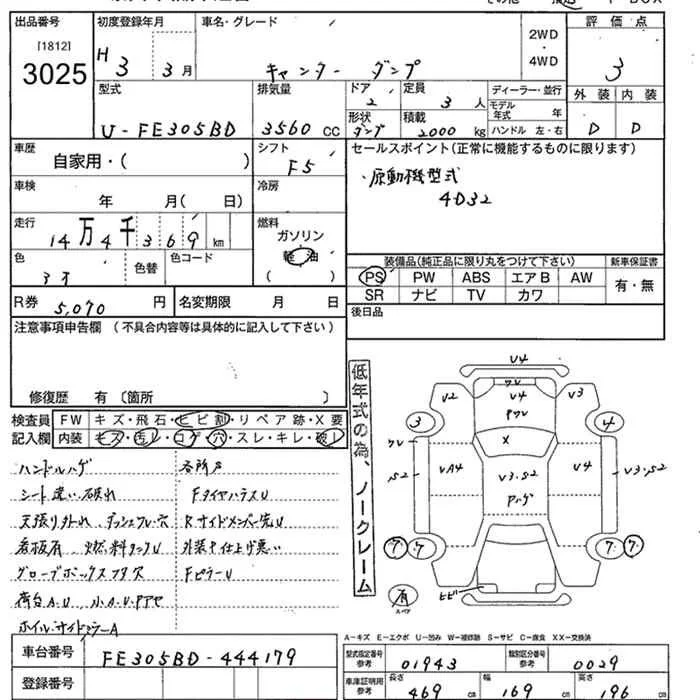 出品番号 初度登録年月 車名・グレード 評価点
[1812]
3025
H 3 3月
キャンター ダンプ
2WD・4WD
3
型式 排気量 ドア 2 定員 3人 ディーラー・並行 外装 内装
U-FE305BD 3560cc 形状 ダンプ 積載 2000kg モデル年式 年 ハンドル 左・右 D D
車歴 シフト セールスポイント(正常に機能するものに限ります)
自家用・( ) F5
・原動機型式
4D32
車検 年 月( 日) 冷房
走行 14万4千369km 燃料
ガソリン
軽油
( )
色 色替 色コード
装備品(純正品に限り丸をつけて下さい) 新車保証書
PS PW ABS エアB AW 有・無
SR ナビ TV カワ
R券 5,070円 名変期限 月 日 後日品
注意事項申告欄 (不具合内容等は具体的に記入して下さい)
修復歴 有 〔箇所 〕
検査員記入欄 FW キズ・飛石・ヒビ割・リペア跡・X要
内装 キズ・汚レ・コゲ・穴・スレ・キレ・破レ
ハンドルハゲ 各所サ
シート 破れ FタイヤハウスU
天張り外れ ダッシュフレ・穴 RサイドメンバーU
看板有 燃料タンクU 外装 仕上げ悪い
グローブボックスフタ欠 FピラーU
荷台A・U
ホイル・サイドミラーA
低年式の為、ノークレーム
V4
ワレ
V2 V4 V3
PワレU
3 4
ワレ X
S2 VA4 V3・S2 V4 V3・S2
Pハゲ
7 7 7 7
有 スペア ヒビ
A-キズ E-エクボ U-凹み W-補修跡 S-サビ C-腐食 XX-交換済
車台番号 FE305BD-444179
登録番号
型式指定番号 参考 01943 類別区分番号 参考 0029
車庫証明用 参考 長さ 469cm 幅 169cm 高さ 196cm